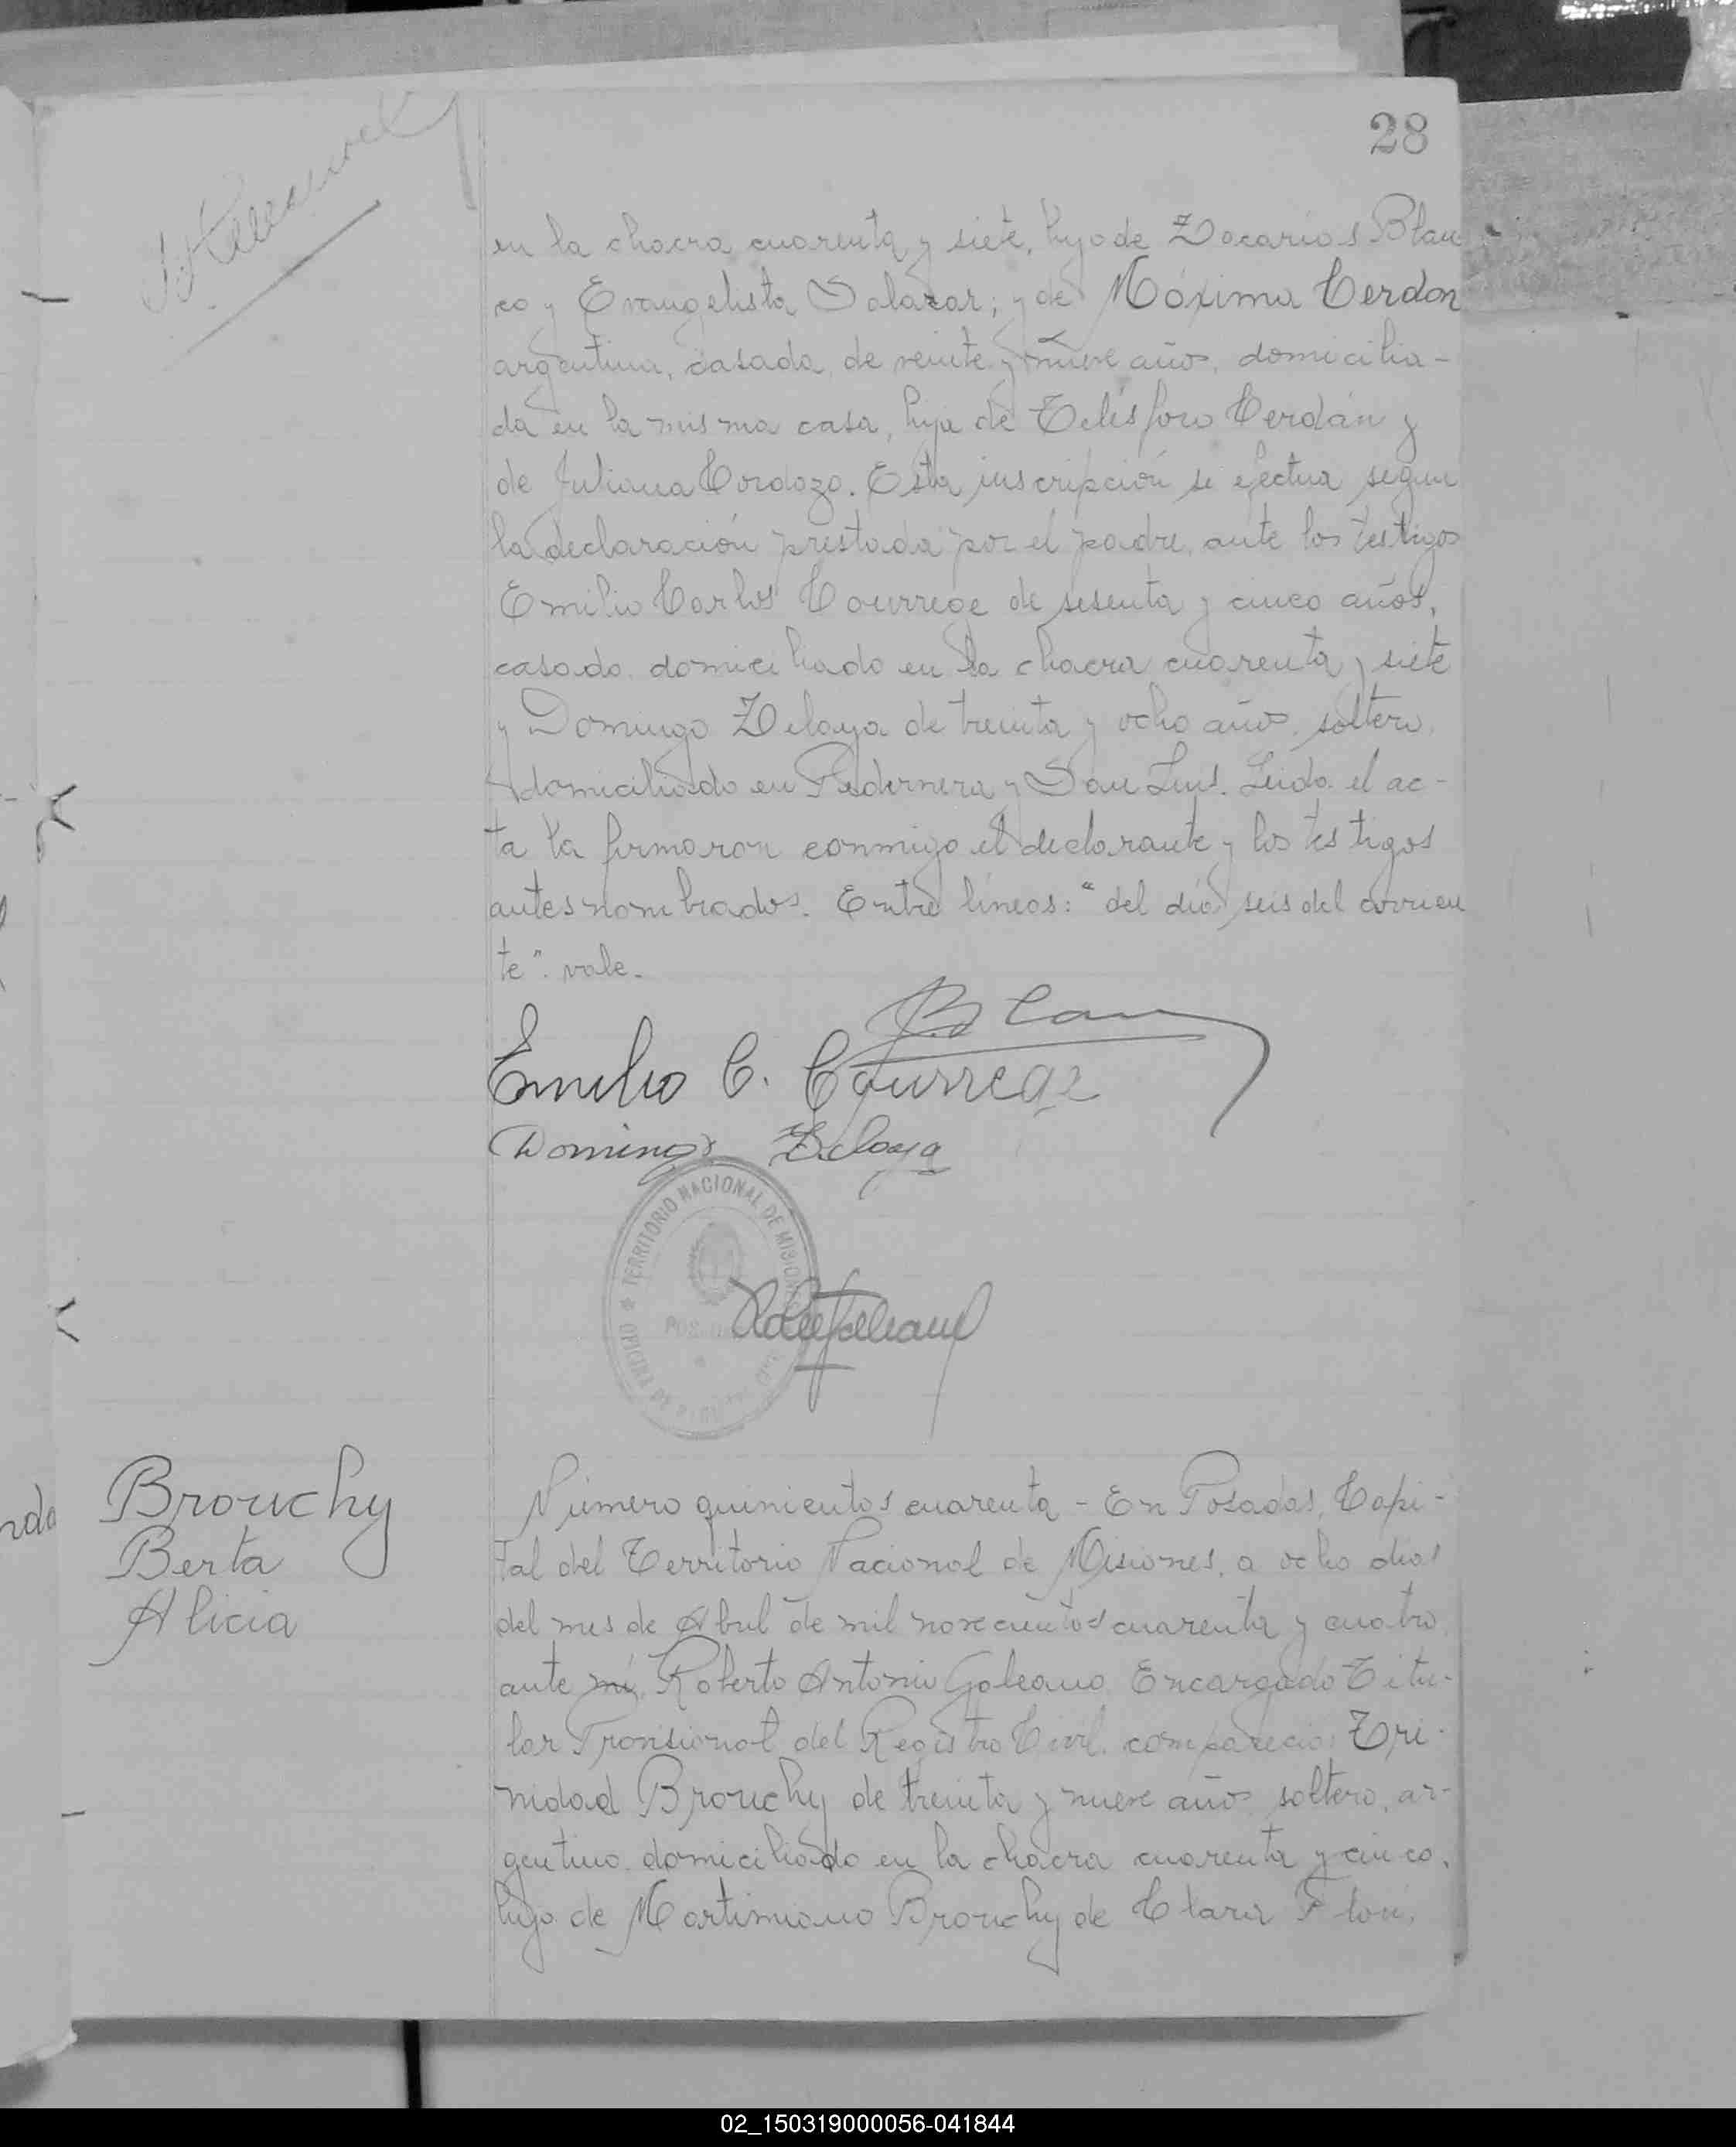 28
en la chacra cuarenta y siete, hijo de Zacarías Blan
co y Evangelista Salazar; y de Máxima Cerdan
argentina, casada, de veinte y nueve años, domicilia-
da en la misma casa, hija de Telésforo Cerdán y
de Juliana Cordozo. Esta inscripción se efectua segun
la declaración prestada por el padre, ante los testigos
Emilio Carlos Courrege de sesenta y cinco años,
casado, domiciliado en la chacra cuarenta y siete
y Domingo Zelaya de treinta y ocho años, soltero,
domiciliado en Pedernera y San Luis. Leida el ac-
ta la firmaron conmigo el declarante y los testigos
antes nombrados. Entre líneas: "del día seis del corrien
te". vale.
Blan
Emilio C. Courrege
Domingo Zelaya
TERRITORIO NACIONAL DE MISIONES
POSADAS
Brouchy
Berta
Alicia
Número quinientos cuarenta - En Posadas, Capi-
tal del Territorio Nacional de Misiones, a ocho dias
del mes de Abril de mil novecientos cuarenta y cuatro,
ante mí, Roberto Antonio Galeano, Encargado Titu-
lar Provisional del Registro Civil, compareció: Tri-
nidad Brouchy de treinta y nueve años, soltero, ar-
gentino, domiciliado en la chacra cuarenta y cinco,
hijo de Martimiano Brouchy de Clara